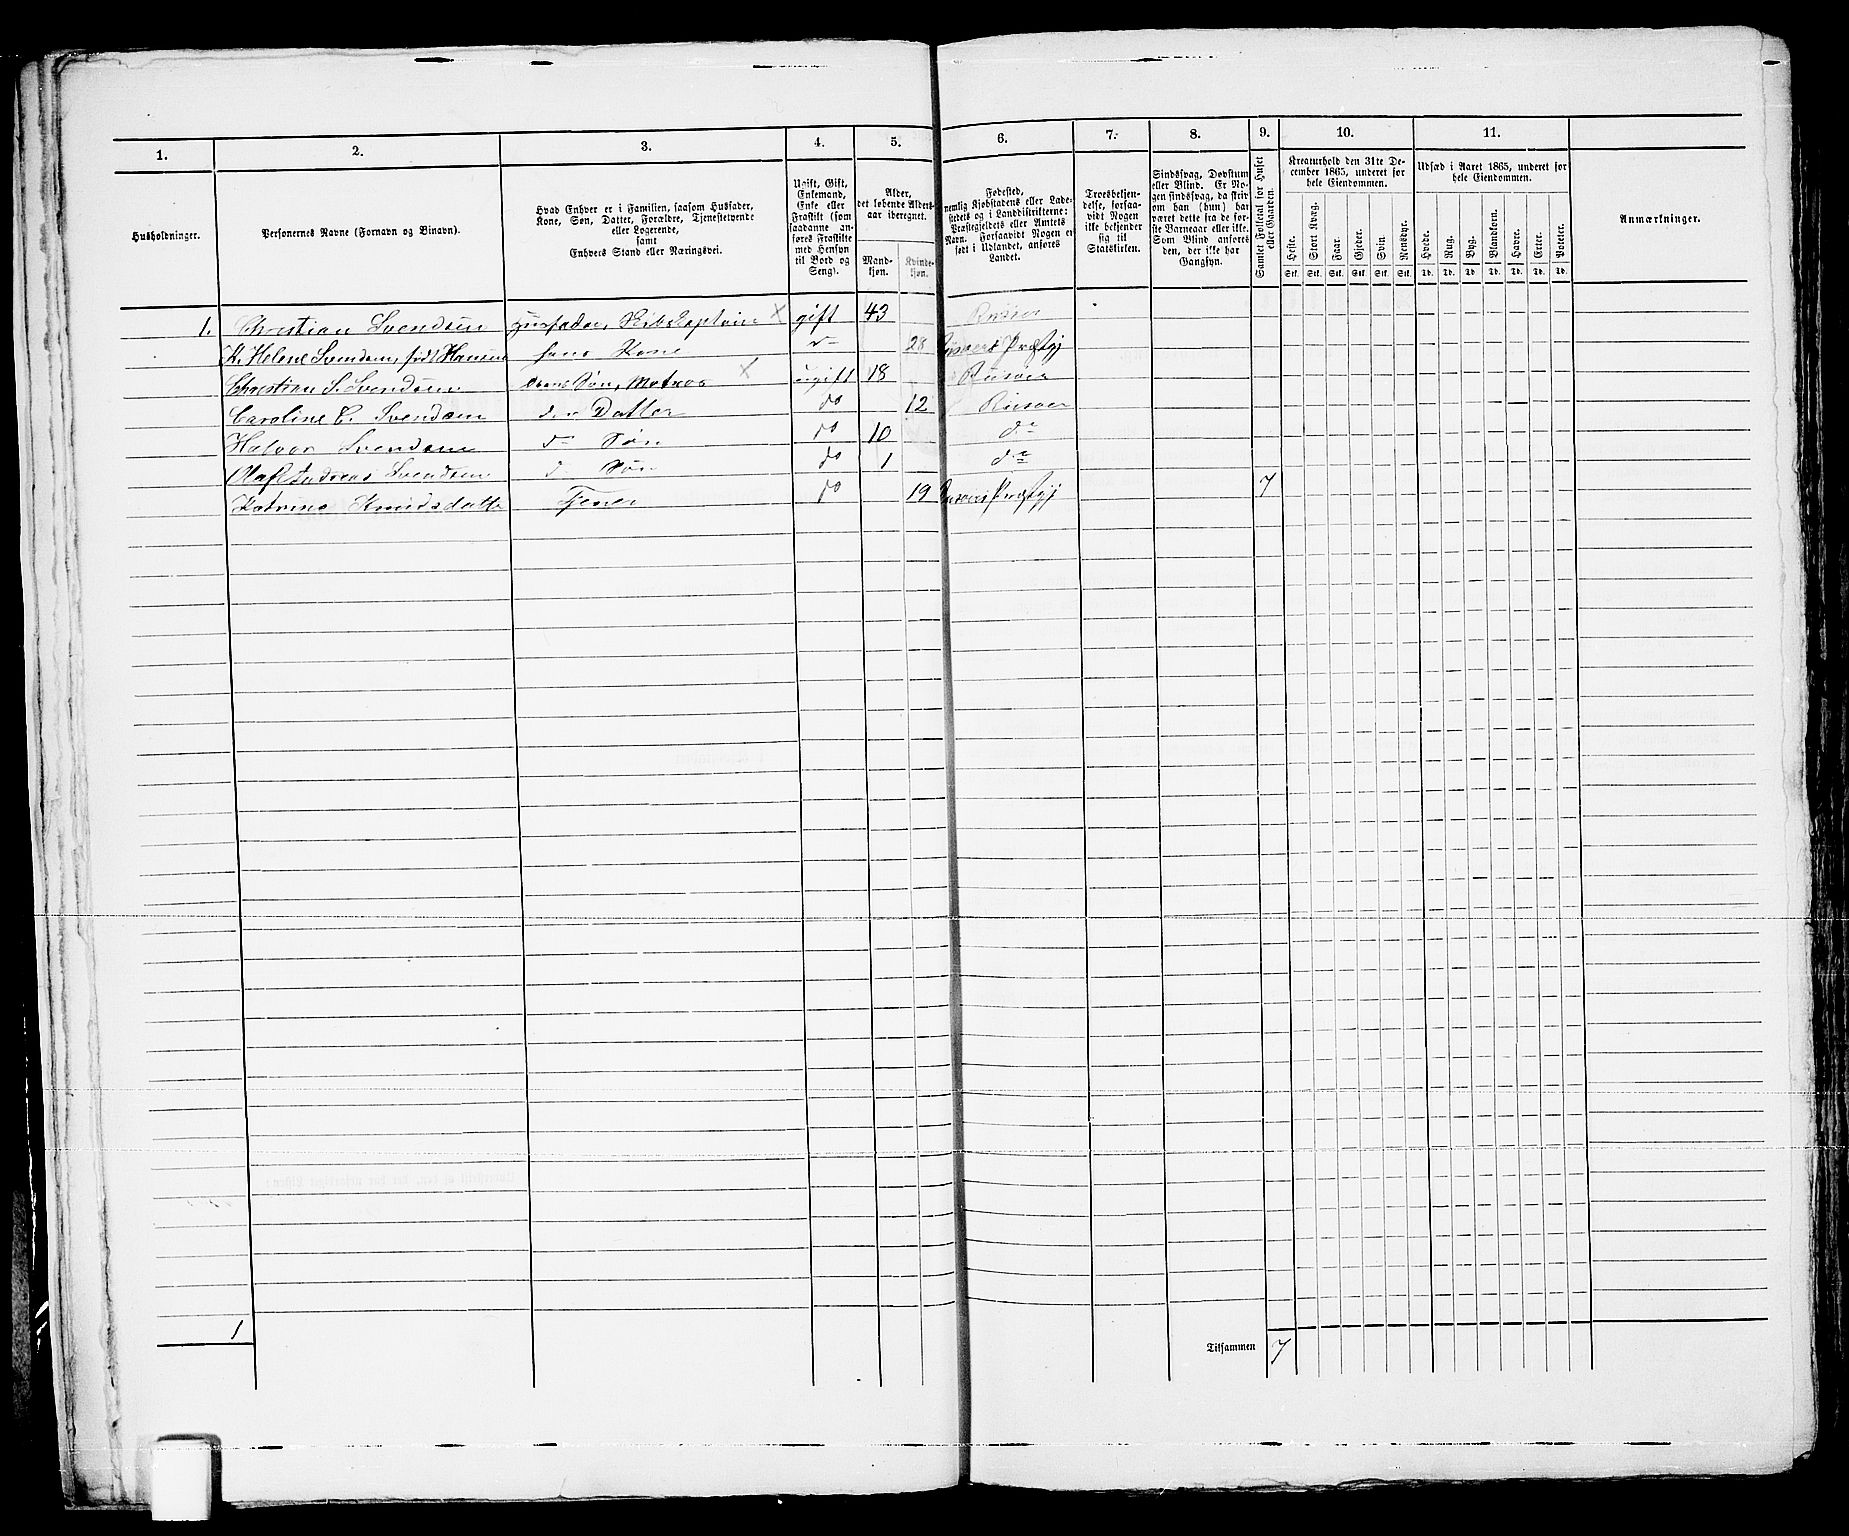 1. 2. 3. 4. 5. 6. 7. 8. 9. 10. 11.
Husholdninger.
Personernes Navne (Fornavn og Binavn).
Hvad Enhver er i Familien, saasom Husfader,
Kone, Søn, Datter, Forældre, Tjenestetyende
eller Logerende,
samt
Enhvers Stand eller Næringsvei.
Ugift, Gift,
Enkemand,
Enke eller
Fraskilt (som
saadanne an-
føres Fraskilte
med Hensyn
til Bord og
Seng).
Alder,
det løbende Alders-
aar iberegnet.
Mand-
kjøn.
Kvinde-
kjøn.
Fødested,
nemlig Kjøbstadens eller Lade-
stedets og i Landdistrikterne:
Præstegjeldets eller Amtets
Navn. Forsaavidt Nogen er
født i Udlandet, anføres
Landet.
Troesbekjen-
delse, forsaa-
vidt Nogen
ikke bekjender
sig til
Statskirken.
Sindssvag, Døvstum
eller Blind. Er No-
gen sindssvag, da skriv
om han (hun) har
været dette fra de før-
ste Barneaar eller ikke.
Som Blind anføres
den, der ikke har
Gangsyn.
Samlet Folketal for Huset
eller Gaarden.
Kreaturhold den 31te De-
cember 1865, underet for
hele Eiendommen.
Heste. Stort Kvæg. Faar. Gjeder. Svin. Rensdyr.
Stk. Stk. Stk. Stk. Stk. Stk.
Udsæd i Aaret 1865, underet for
hele Eiendommen.
Hvede. Rug. Byg. Blandkorn. Havre. Erter. Poteter.
Td. Td. Td. Td. Td. Td. Td.
Anmærkninger.
1. Christian Svendsen Husfader, Skibskaptein X gift 43 Riisøer
K. Helene Svendsen, født Hansen hans Kone do 28 Riisøers Præstgj
Christian S. Svendsen Søn, Matros X ugift 18 Riisøer
Caroline C. Svendsen Datter do 12 Riisøer
Halvor Svendsen do Søn do 10 do
Olaf Andreas Svendsen do Søn do 1 do
Katrine Knudsdatter Tjener do 19 Præstgj 7
1
Tilsammen 7